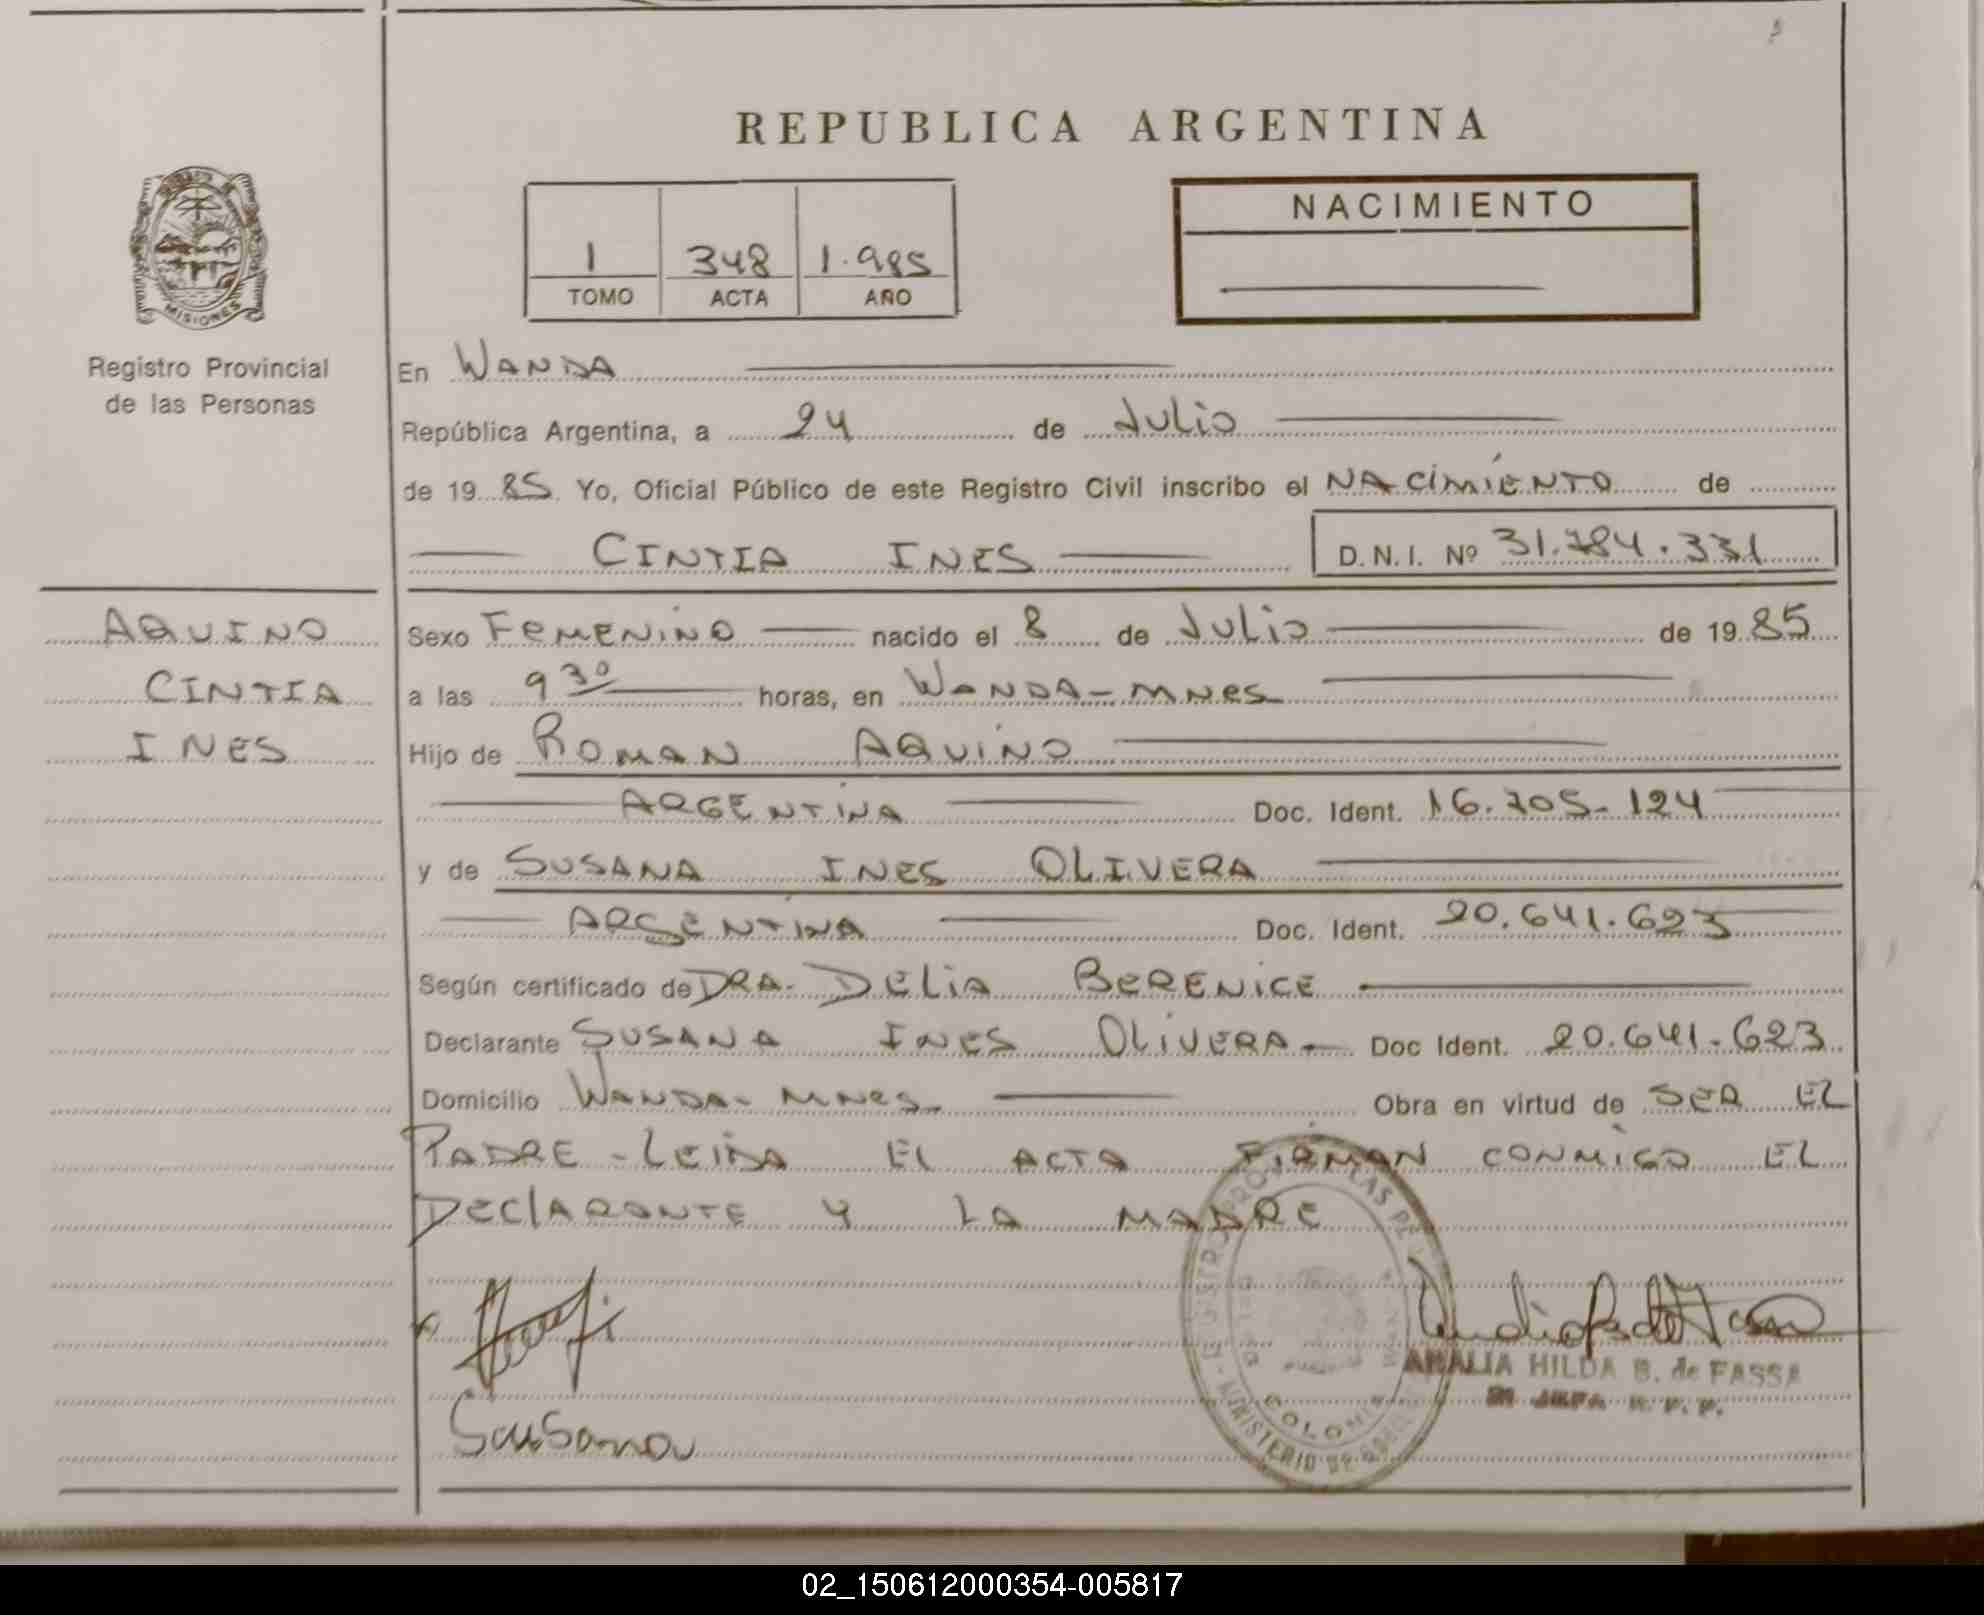 REPUBLICA ARGENTINA
MISIONES
Registro Provincial
de las Personas
1 348 1.985
TOMO ACTA AÑO
NACIMIENTO
En WANDA
República Argentina, a 24 de Julio
de 19 85 Yo, Oficial Público de este Registro Civil inscribo el NACimiENTO de
CINTIA INES D.N.I. Nº 31.784.331
AQUINO
CINTIA
INES
Sexo FEMENINO nacido el 8 de Julio de 19 85
a las 9 30 horas, en WANDA-MNES
Hijo de ROMAN AQUINO
ARGENTINA Doc. Ident. 16.705.124
y de SUSANA INES OLIVERA
ARGENTINA Doc. Ident. 20.641.623
Según certificado de DRA. DELIA BERENICE
Declarante SUSANA INES OLIVERA Doc Ident. 20.641.623
Domicilio WANDA-MNES Obra en virtud de SER EL
PADRE - LEIDA EL ACTA FIRMAN CONMIGO EL
DECLARANTE Y LA MADRE
Susana
MINISTERIO DE
COLONIA
AMALIA HILDA B. de FASSA
02_150612000354-005817